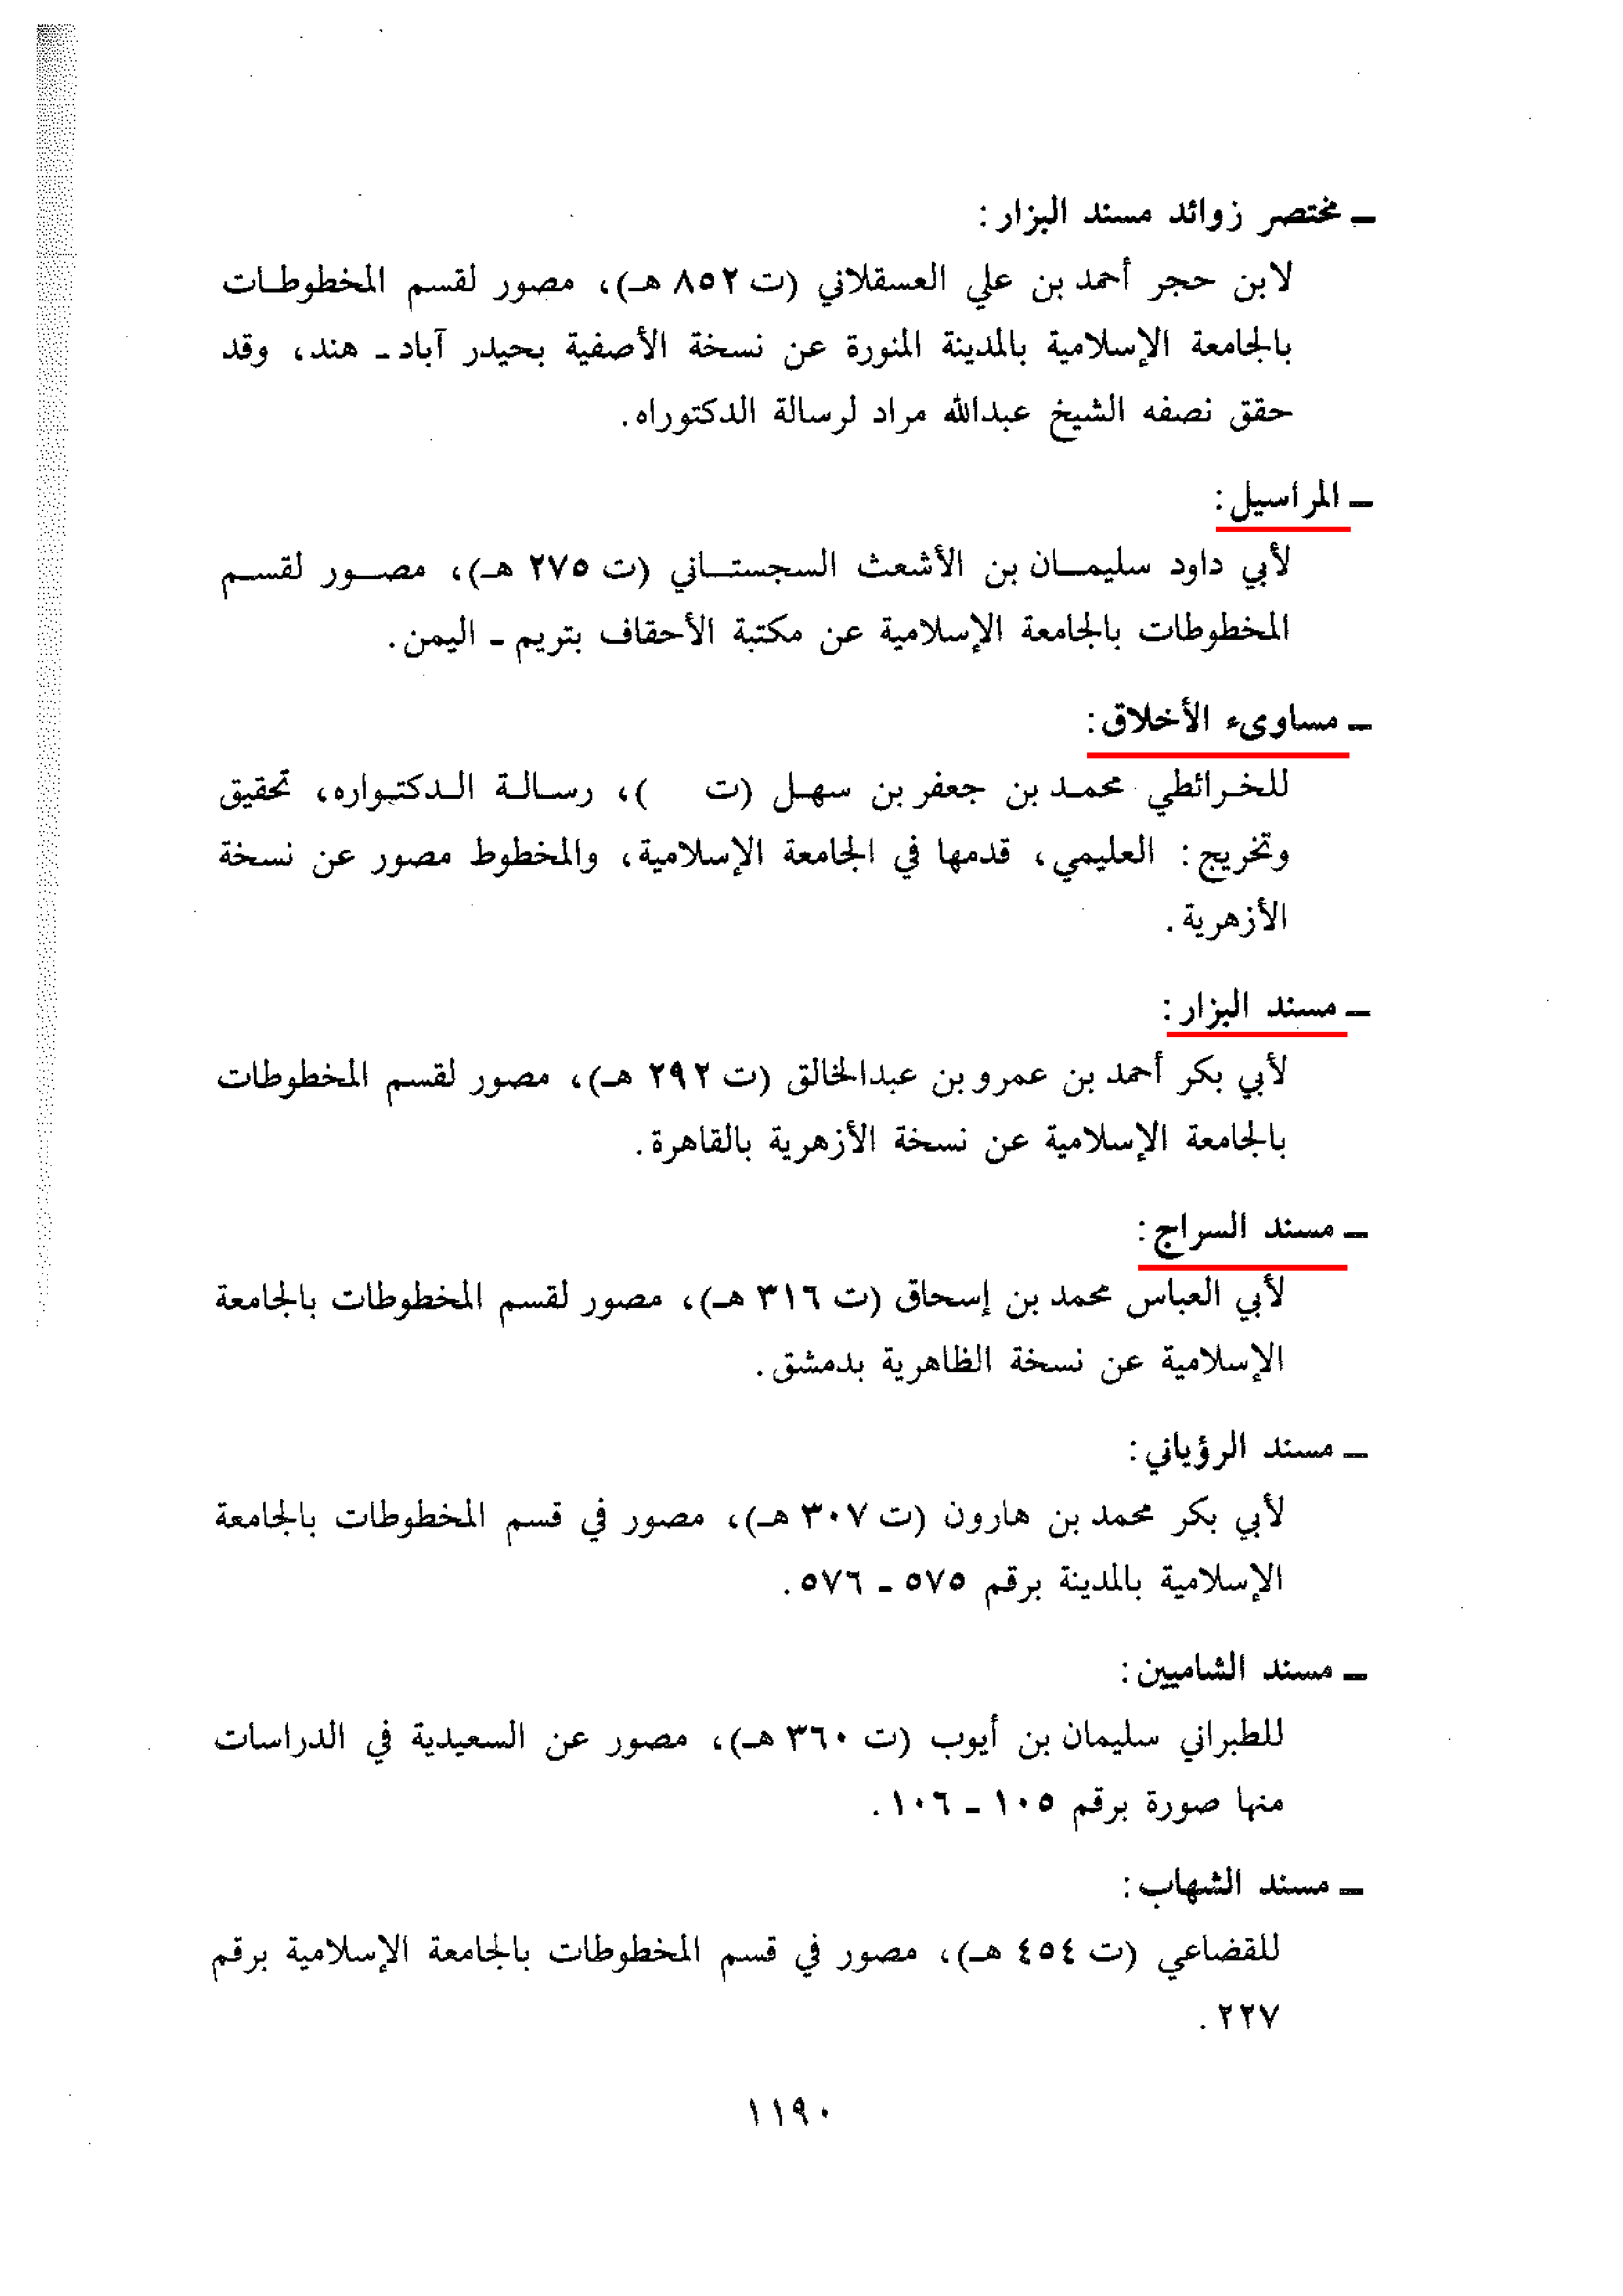 ـ مختصر زوائد مسند البزار:
لابن حجر أحمد بن علي العسقلاني (ت ٨٥٢ هـ)، مصور لقسم المخطوطات
بالجامعة الإسلامية بالمدينة المنورة عن نسخة الأصفية بحيدر آباد ـ هند، وقد
حقق نصفه الشيخ عبدالله مراد لرسالة الدكتوراه.
ـ المراسيل:
لأبي داود سليمان بن الأشعث السجستاني (ت ٢٧٥ هـ)، مصور لقسم
المخطوطات بالجامعة الإسلامية عن مكتبة الأحقاف بتريم ـ اليمن.
ـ مساوىء الأخلاق:
للخرائطي محمد بن جعفر بن سهل (ت    )، رسالة الدكتواره، تحقيق
وتخريج: العليمي، قدمها في الجامعة الإسلامية، والمخطوط مصور عن نسخة
الأزهرية.
ـ مسند البزار:
لأبي بكر أحمد بن عمرو بن عبدالخالق (ت ٢٩٢ هـ)، مصور لقسم المخطوطات
بالجامعة الإسلامية عن نسخة الأزهرية بالقاهرة.
ـ مسند السراج:
لأبي العباس محمد بن إسحاق (ت ٣١٦ هـ)، مصور لقسم المخطوطات بالجامعة
الإسلامية عن نسخة الظاهرية بدمشق.
ـ مسند الرؤياني:
لأبي بكر محمد بن هارون (ت ٣٠٧ هـ)، مصور في قسم المخطوطات بالجامعة
الإسلامية بالمدينة برقم ٥٧٥ ـ ٥٧٦.
ـ مسند الشاميين:
للطبراني سليمان بن أيوب (ت ٣٦٠ هـ)، مصور عن السعيدية في الدراسات
منها صورة برقم ١٠٥ ـ ١٠٦.
ـ مسند الشهاب:
للقضاعي (ت ٤٥٤ هـ)، مصور في قسم المخطوطات بالجامعة الإسلامية برقم
٢٢٧.
١١٩٠